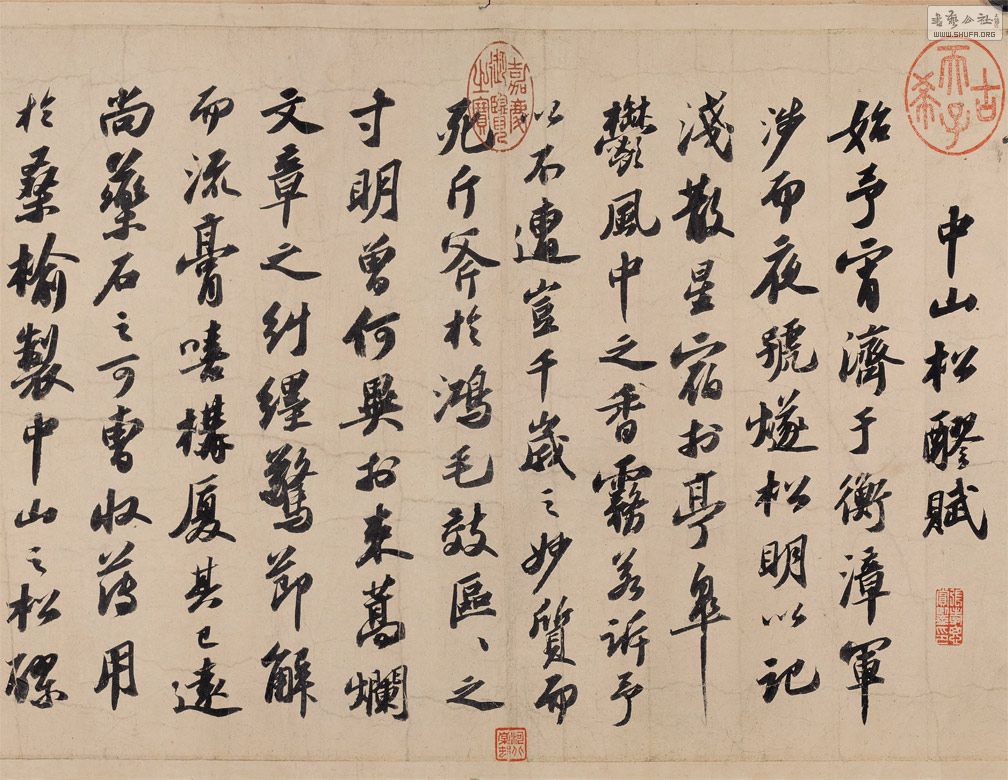 中山松醪賦
始予宵濟于衡漳軍
涉而夜號燧松明以記
淺散星宿於亭皐
鬱風中之香霧若訴予
以不遭豈千歲之妙質而
死斤斧於鴻毛效區々之
寸明曾何異於束蒿爛
文章之糾纆驚節解
而流膏嘻構厦其已遠
尚藥石之可曹收薄用
於桑榆製中山之松醪
古希天子
嘉慶御覽之寶
書藝公社
WWW.SHUFA.ORG